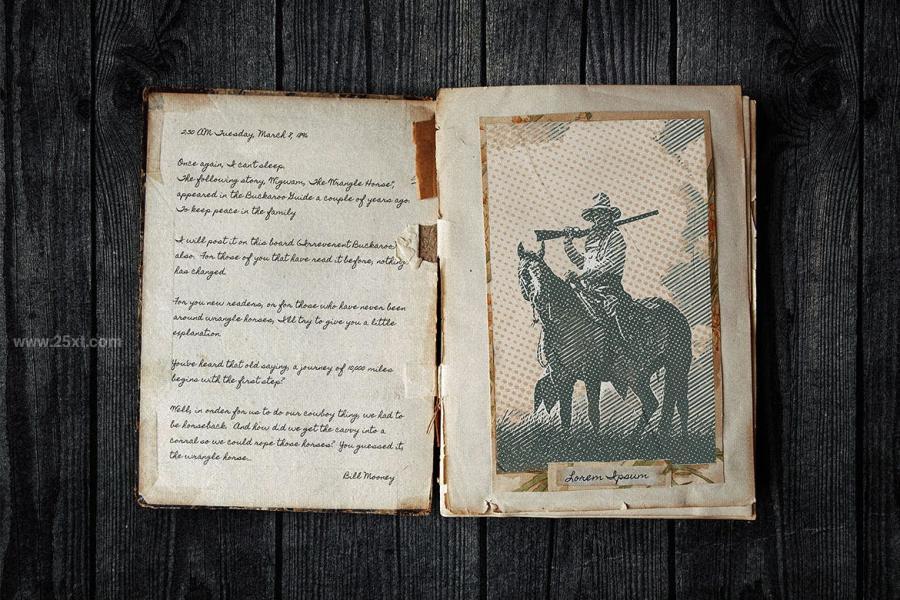 2:30 AM Tuesday, March 8, 1896
Once again, I can't sleep.
The following story, Wigwam, "The Wrangle Horse",
appeared in the Buckaroo Guide a couple of years ago.
To keep peace in the family
I will post it on this board (Irreverent Buckaroo)
also. For those of you that have read it before, nothing
has changed.
For you new readers, or for those who have never been
around wrangle horses, I'll try to give you a little
explanation.
You've heard that old saying, a journey of 10,000 miles
begins with the first step?
Well, in order for us to do our cowboy thing, we had to
be horseback. And how did we get the cavvy into a
corral so we could rope those horses? You guessed it,
the wrangle horse...
Bill Mooney
Lorem Ipsum
www.25xt.com